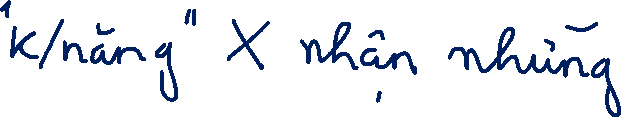 "k/năng" X nhận những